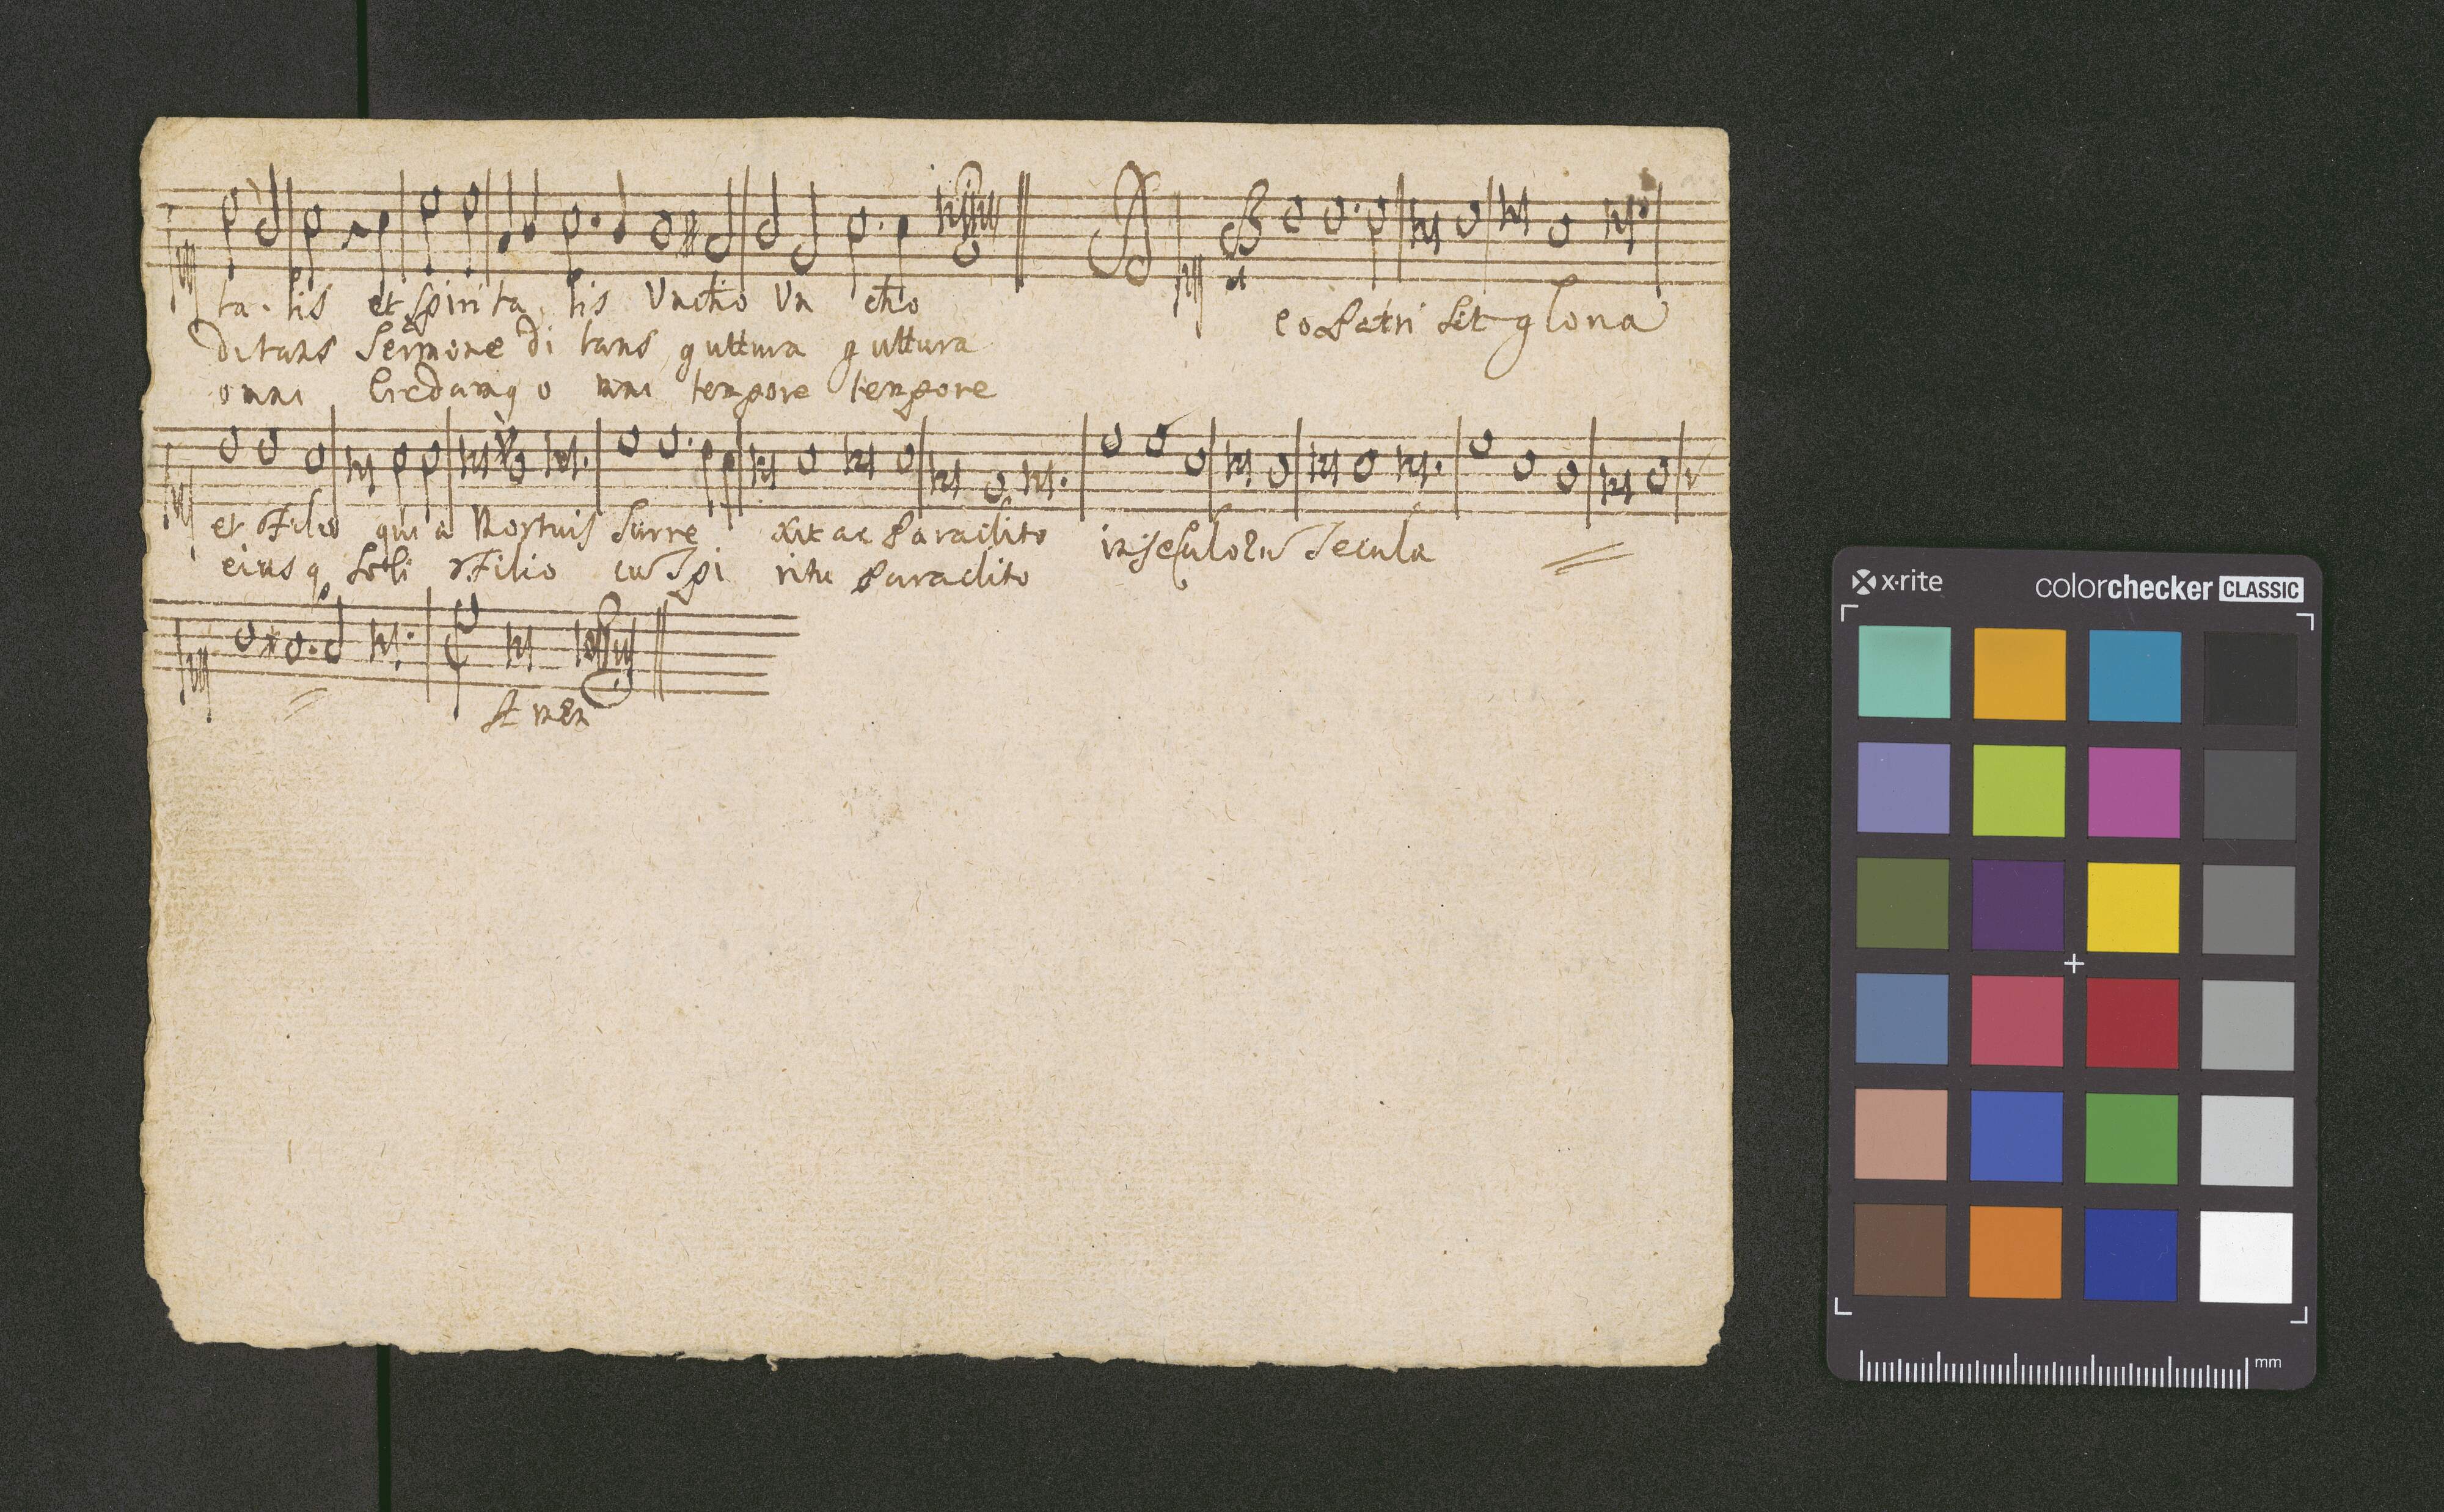 ta - tis et spiri ta tis Unctio Un ctio
ditans Sermone di tans guttura guttura
omni credamq o mni tempore tempore
eo Patri sit gloria
et Filio qui a Mortuis surre xit ac Paraclito in seculoru secula
eiusq soli Filio cu Spi ritu Paraclito
Amen
x-rite
colorchecker CLASSIC
mm